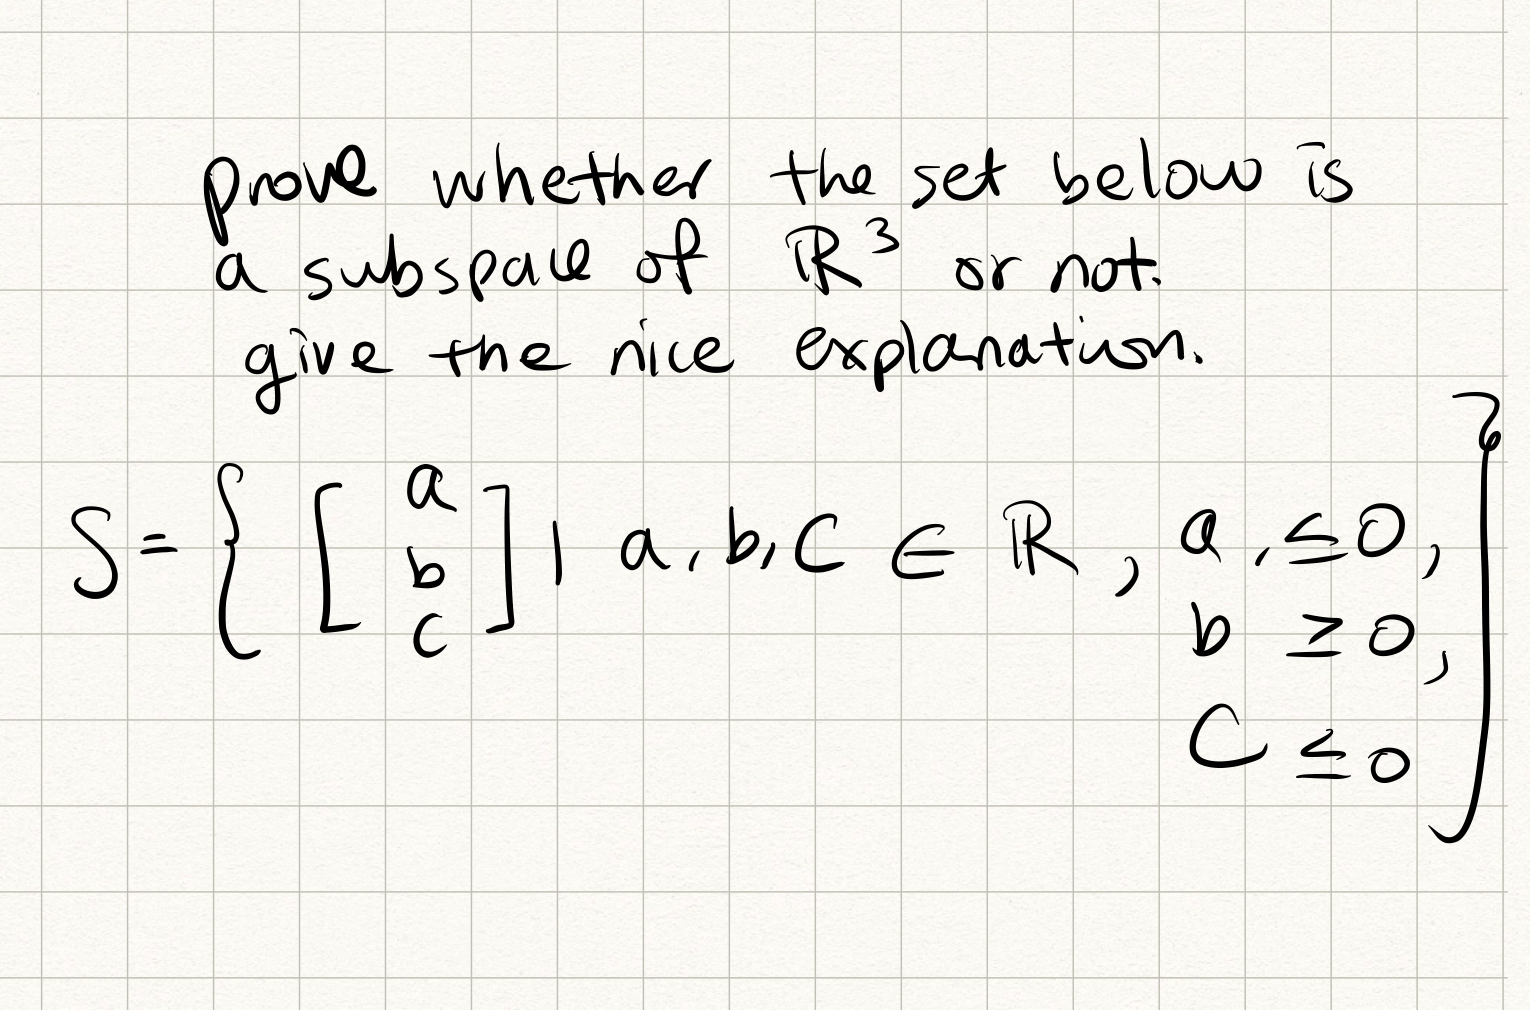 prove whether the set below is
a subspace of ℝ³ or not.
give the nice explanation.
S = { [ a b c ] | a, b, c ∈ ℝ, a, ≤ 0,
b ≥ 0,
c ≤ 0 }